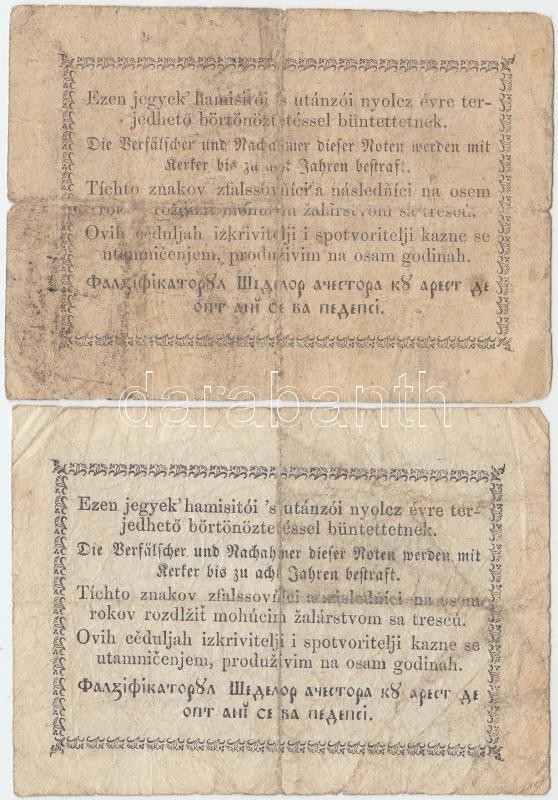 Ezen jegyek' hamisitói 's utánzói nyolcz évre ter-
jedhető börtönöztetéssel büntettetnek.
Die Verfälscher und Nachahmer dieser Noten werden mit
Kerker bis zu acht Jahren bestraft.
Tíchto znakov zfalssovňíci a následňíci na osem
rokov rozdlžiť mohúcim žalárstvom sa trescú.
Ovih cěduljah izkrivitelji i spotvoritelji kazne se
utamničenjem, produživim na osam godinah.
Фалꙁіфікаторꙋл Шеделор ачестора кꙋ арест де
опт анй се ва педепсі.
darabanth
Ezen jegyek' hamisitói 's utánzói nyolcz évre ter-
jedhető börtönöztetéssel büntettetnek.
Die Verfälscher und Nachahmer dieser Noten werden mit
Kerker bis zu acht Jahren bestraft.
Tíchto znakov zfalssovňíci a následňíci na osem
rokov rozdlžiť mohúcim žalárstvom sa trescú.
Ovih cěduljah izkrivitelji i spotvoritelji kazne se
utamničenjem, produživim na osam godinah.
Фалꙁіфікаторꙋл Шеделор ачестора кꙋ арест де
опт анй се ва педепсі.